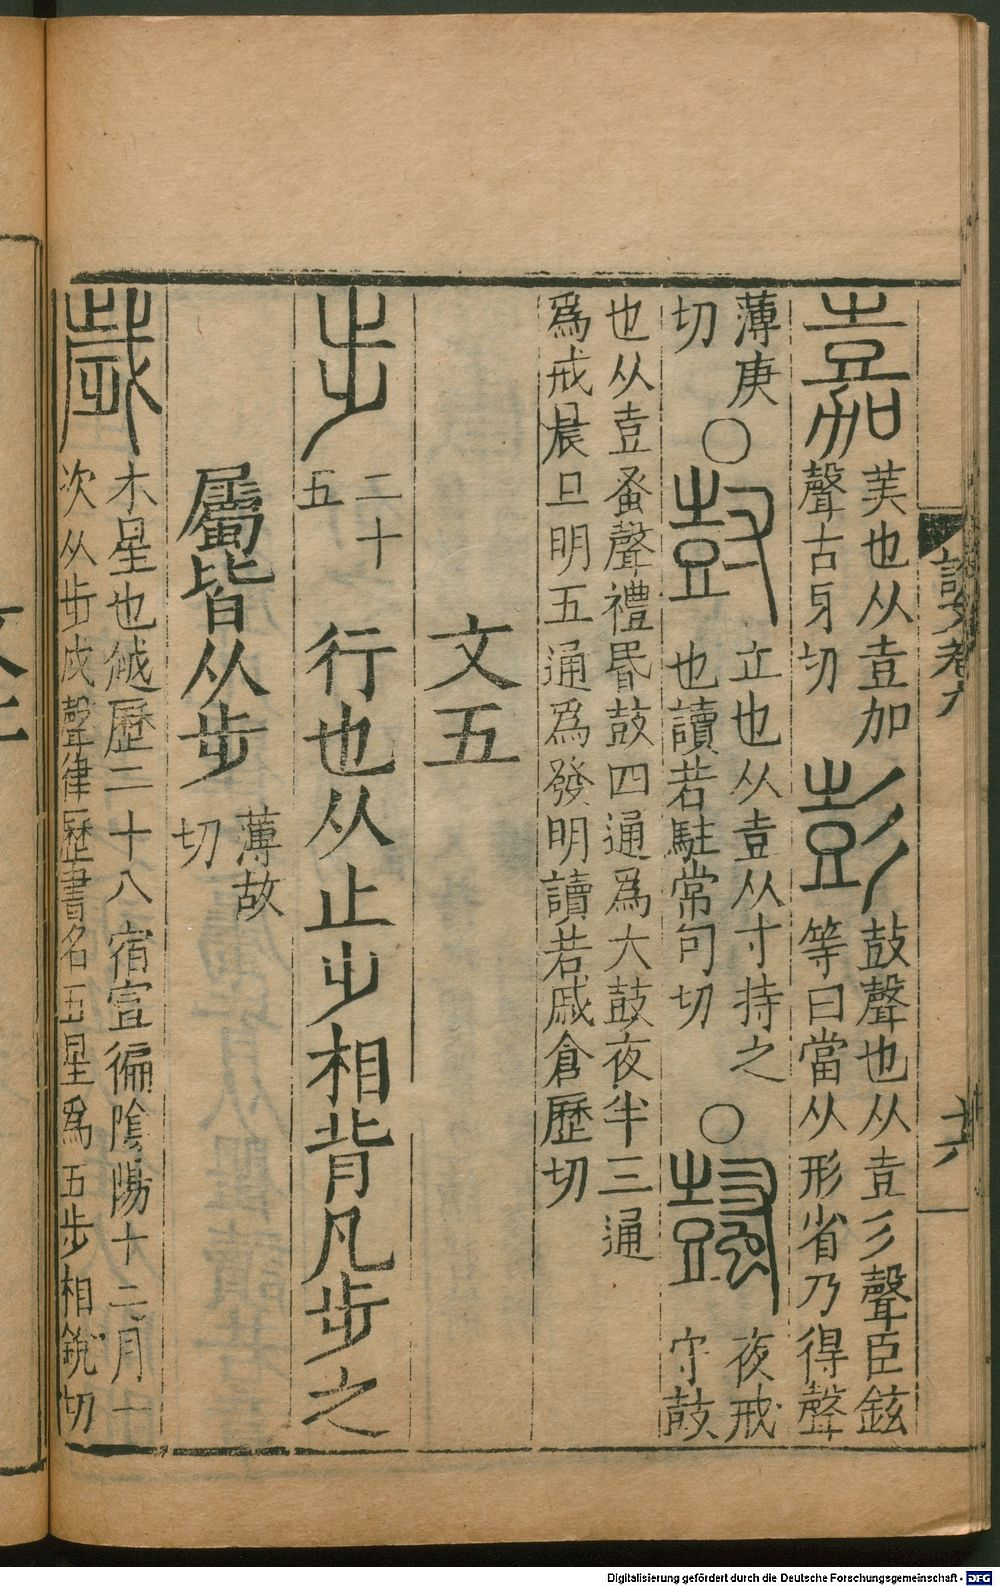 說文卷六
六
嘉
美也从壴加
聲古牙切
彭
鼓聲也从壴彡聲臣鉉
等曰當从形省乃得聲
薄庚
切
○
尌
立也从壴从寸持之
也讀若駐常句切
○
夜戒
守鼓
也从壴蚤聲禮昬鼓四通為大鼓夜半三通
為戒晨旦明五通為發明讀若戚倉歷切
文五
步
二十
五
行也从止𣥂相背凡步之
屬皆从步
薄故
切
歲
木星也越歷二十八宿宣徧陰陽十二月一
次从步戌聲律歷書名五星為五步相銳切
Digitalisierung gefördert durch die Deutsche Forschungsgemeinschaft - DFG